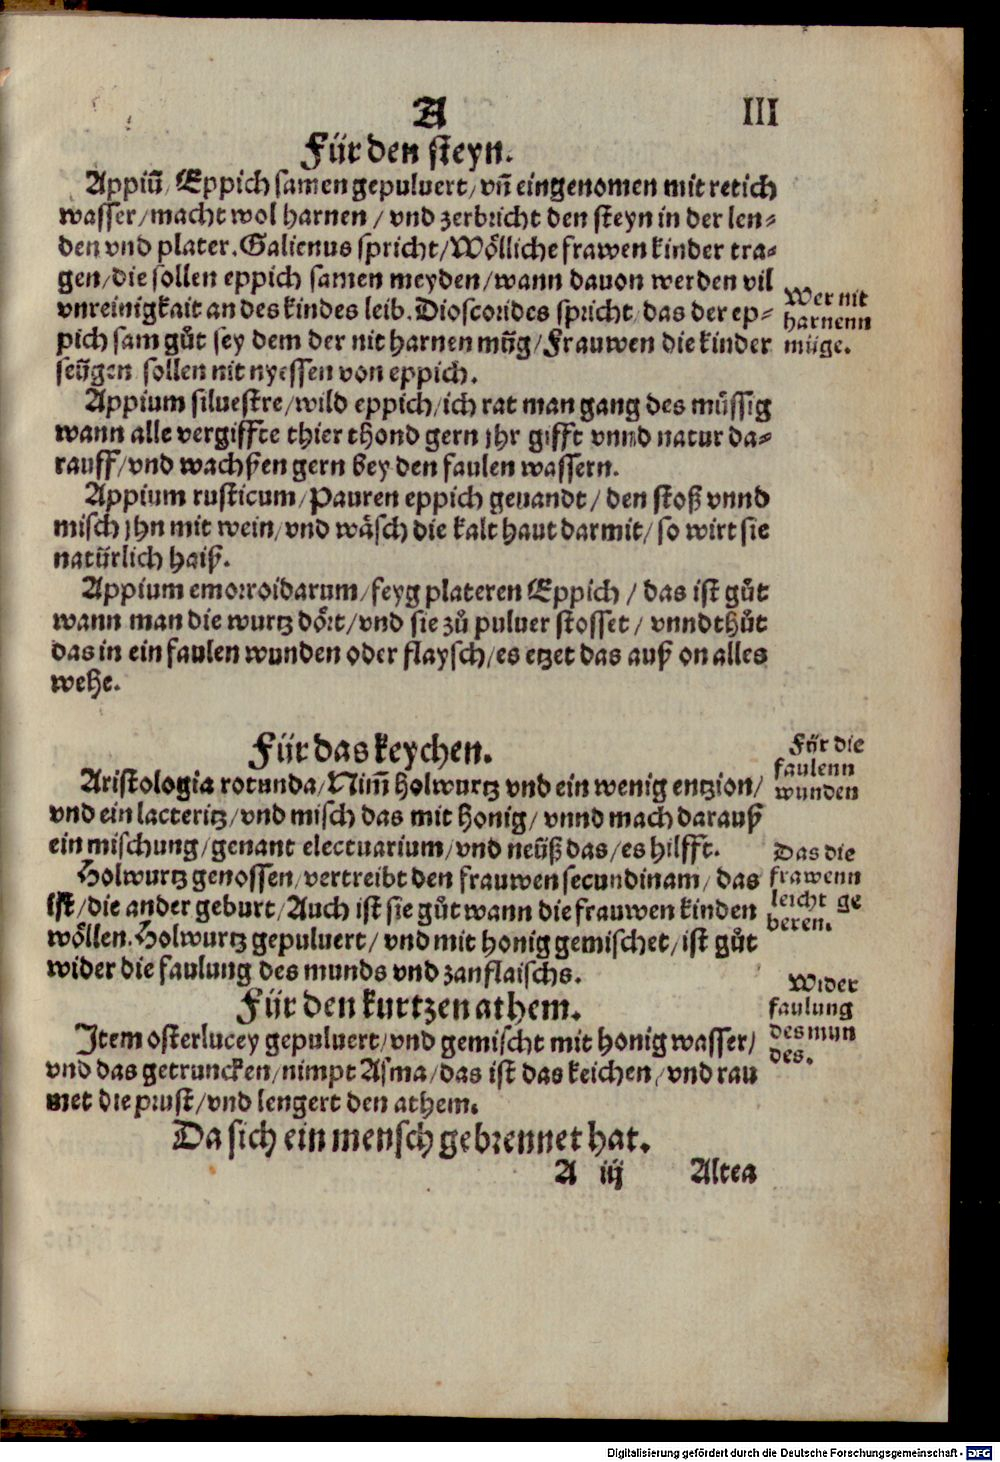 A III
Für den steyn.
Appiū/ Eppich samen gepuluert/ vn̄ eingenomen mit retich
wasser/macht wol harnen / vnd zerbricht den steyn in der len-
den vnd plater. Galienus spricht/ Woͤlliche frawen kinder tra-
gen/die sollen eppich samen meyden/wann dauon werden vil
vnreinigkait an des kindes leib. Dioscorides spricht/ das der ep-
pich sam guͦt sey dem der nit harnen müg/Frauwen die kinder
seügen sollen nit nyessen von eppich.
Wer nit
harnenn
müge.
Appium siluestre/wild eppich/ich rat man gang des müssig
wann alle vergiffte thier thond gern jhr gifft vnnd natur da-
rauff/vnd wachßen gern bey den faulen wassern.
Appium rusticum/Pauren eppich genandt/ den stoß vnnd
misch jhn mit wein/vnd waͤsch die kalt haut darmit/ so wirt sie
natürlich haiß.
Appium emorroidarum/feyg plateren Eppich / das ist guͦt
wann man die wurtz doͤrt/vnd sie zuͦ puluer stosset/ vnnd thuͦt
das in ein faulen wunden oder flaysch/es etzet das auß on alles
wehe.
Für das keychen.
Aristologia rotunda/Nim̄ holwurtz vnd ein wenig entzion/
vnd ein lacteritz/vnd misch das mit honig/ vnnd mach darauß
ein mischung/genant electuarium/vnd neüß das/es hilfft.
Für die
faulenn
wunden
Holwurtz genossen/vertreibt den frauwen secundinam/ das
ist/die ander geburt/Auch ist sie guͦt wann die frauwen kinden
woͤllen. Holwurtz gepuluert/ vnd mit honig gemischet/ist guͦt
wider die faulung des munds vnd zanflaischs.
Das die
frawenn
leicht ge
beren.
Für den kurtzen athem.
Item osterlucey gepuluert/vnd gemischt mit honig wasser/
vnd das getruncken/nimpt Asma/das ist das keichen/vnd rau
met die prust/vnd lengert den athem.
Wider
faulung
des mun
des.
Da sich ein mensch gebrennet hat.
A iij Altea
Digitalisierung gefördert durch die Deutsche Forschungsgemeinschaft - DFG